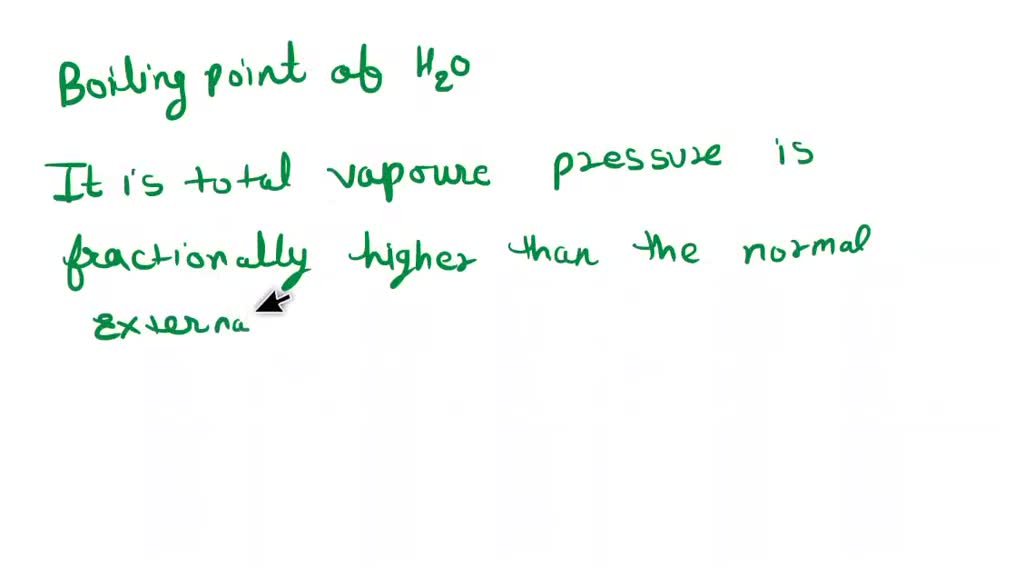 Boiling point of H₂O
It is total vapoure pressure is
fractionally higher than the normal
Externa